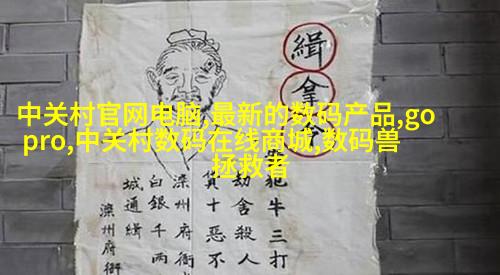 中关村官网电脑,最新的数码产品,go
pro,中关村数码在线商城,数码兽
拯救者
緝拿
犯牛三打
劫舍殺人
貨十惡不
滦州府衙
白銀千兩
城通緝
滦州府衙